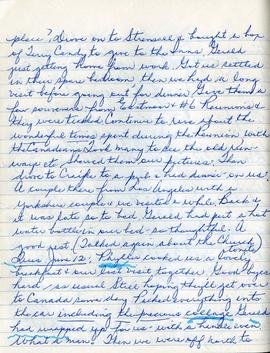 place? Drove on to Strensall & bought a box
of Terry Candy to give to the Inns. Gerald
just getting home from work. Got us settled
in their spare bedroom then we had a long
visit before going out for dinner. Gave them a
few souvenirs from Eastmoor & #6 Reunions &
they were tickled. Continue to rave about the
wonderful times spent during the reunion with
the Canadians. Took many to see the old run-
ways etc. Showed them our pictures. Then
drove to to a pub & had dinner - on us!
A couple there from Los Angeles with a
Yorkshire couple & we visited a while. Back &
it was late so to bed. Gerald had put a hot
water bottle in our bed - so thoughtful. A
good rest (Talked again about the Church
Tues. June 12: Phyllis cooked us a lovely
breakfast & our last visit together. Good byes
hard, as usual. Still hoping they'll get over
to Canada some day. Packed everything into
the car including the precious collage Gerald
had wrapped up for us - with a handle even.
What a man. Then we were off north to